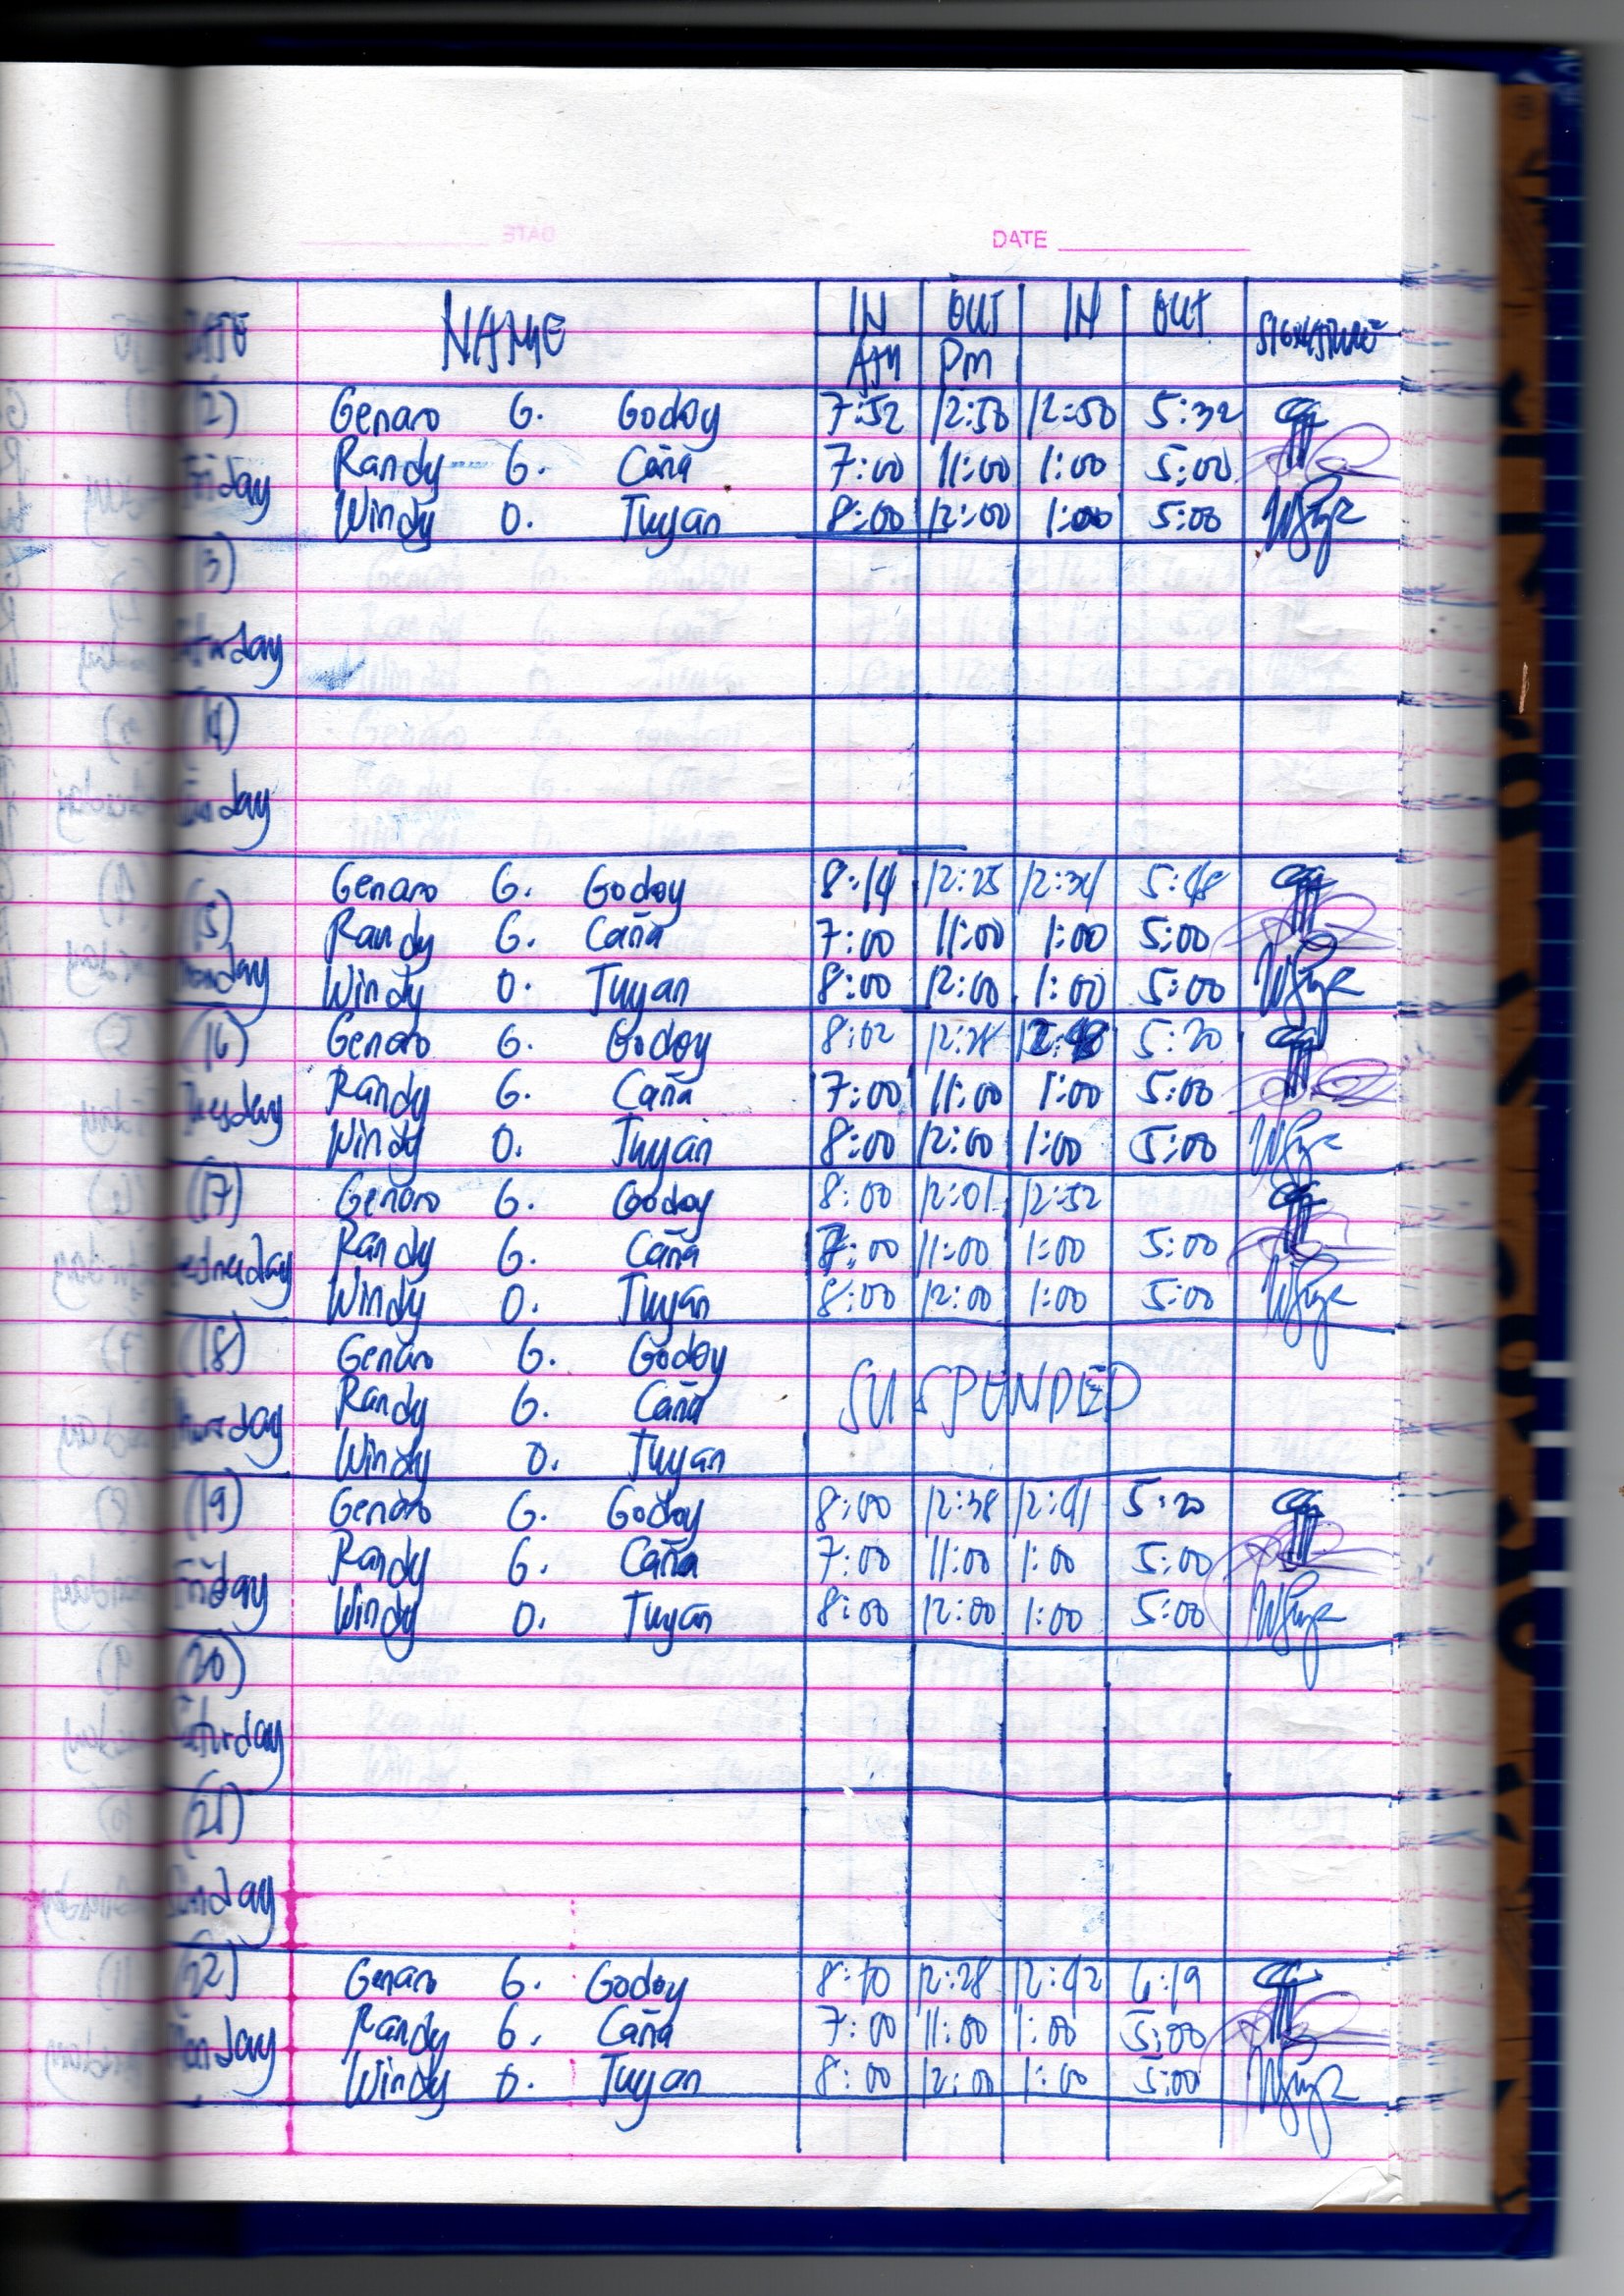 DATE
DATE NAME IN OUT IN OUT SIGNATURE
AM Pm
12) Genaro G. Godoy 7:52 12:50 12:50 5:32
Randy G. Caña 7:00 11:00 1:00 5:00
Friday Windy O. Tuyan 8:00 12:00 1:00 5:00
13)
Saturday
14)
Sunday
Genaro G. Godoy 8:14 12:25 12:34 5:48
15) Randy G. Caña 7:00 11:00 1:00 5:00
Monday Windy O. Tuyan 8:00 12:00 1:00 5:00
(16) Genaro G. Godoy 8:02 12:28 5:20
Tuesday Randy G. Caña 7:00 11:00 1:00 5:00
Windy O. Tuyan 8:00 12:00 1:00 5:00
(17) Genaro G. Godoy 8:00 12:01 12:52
Wednesday Randy G. Caña 7:00 11:00 1:00 5:00
Windy O. Tuyan 8:00 12:00 1:00 5:00
(18) Genaro G. Godoy
Randy G. Caña SUSPENDED
Thursday Windy O. Tuyan
(19) Genaro G. Godoy 8:00 12:38 12:41 5:20
Randy G. Caña 7:00 11:00 1:00 5:00
Friday Windy O. Tuyan 8:00 12:00 1:00 5:00
(20)
Saturday
(21)
Sunday
22) Genaro G. Godoy 8:10 12:28 12:42 6:19
Monday Randy G. Caña 7:00 11:00 1:00 5:00
Windy O. Tuyan 8:00 12:00 1:00 5:00